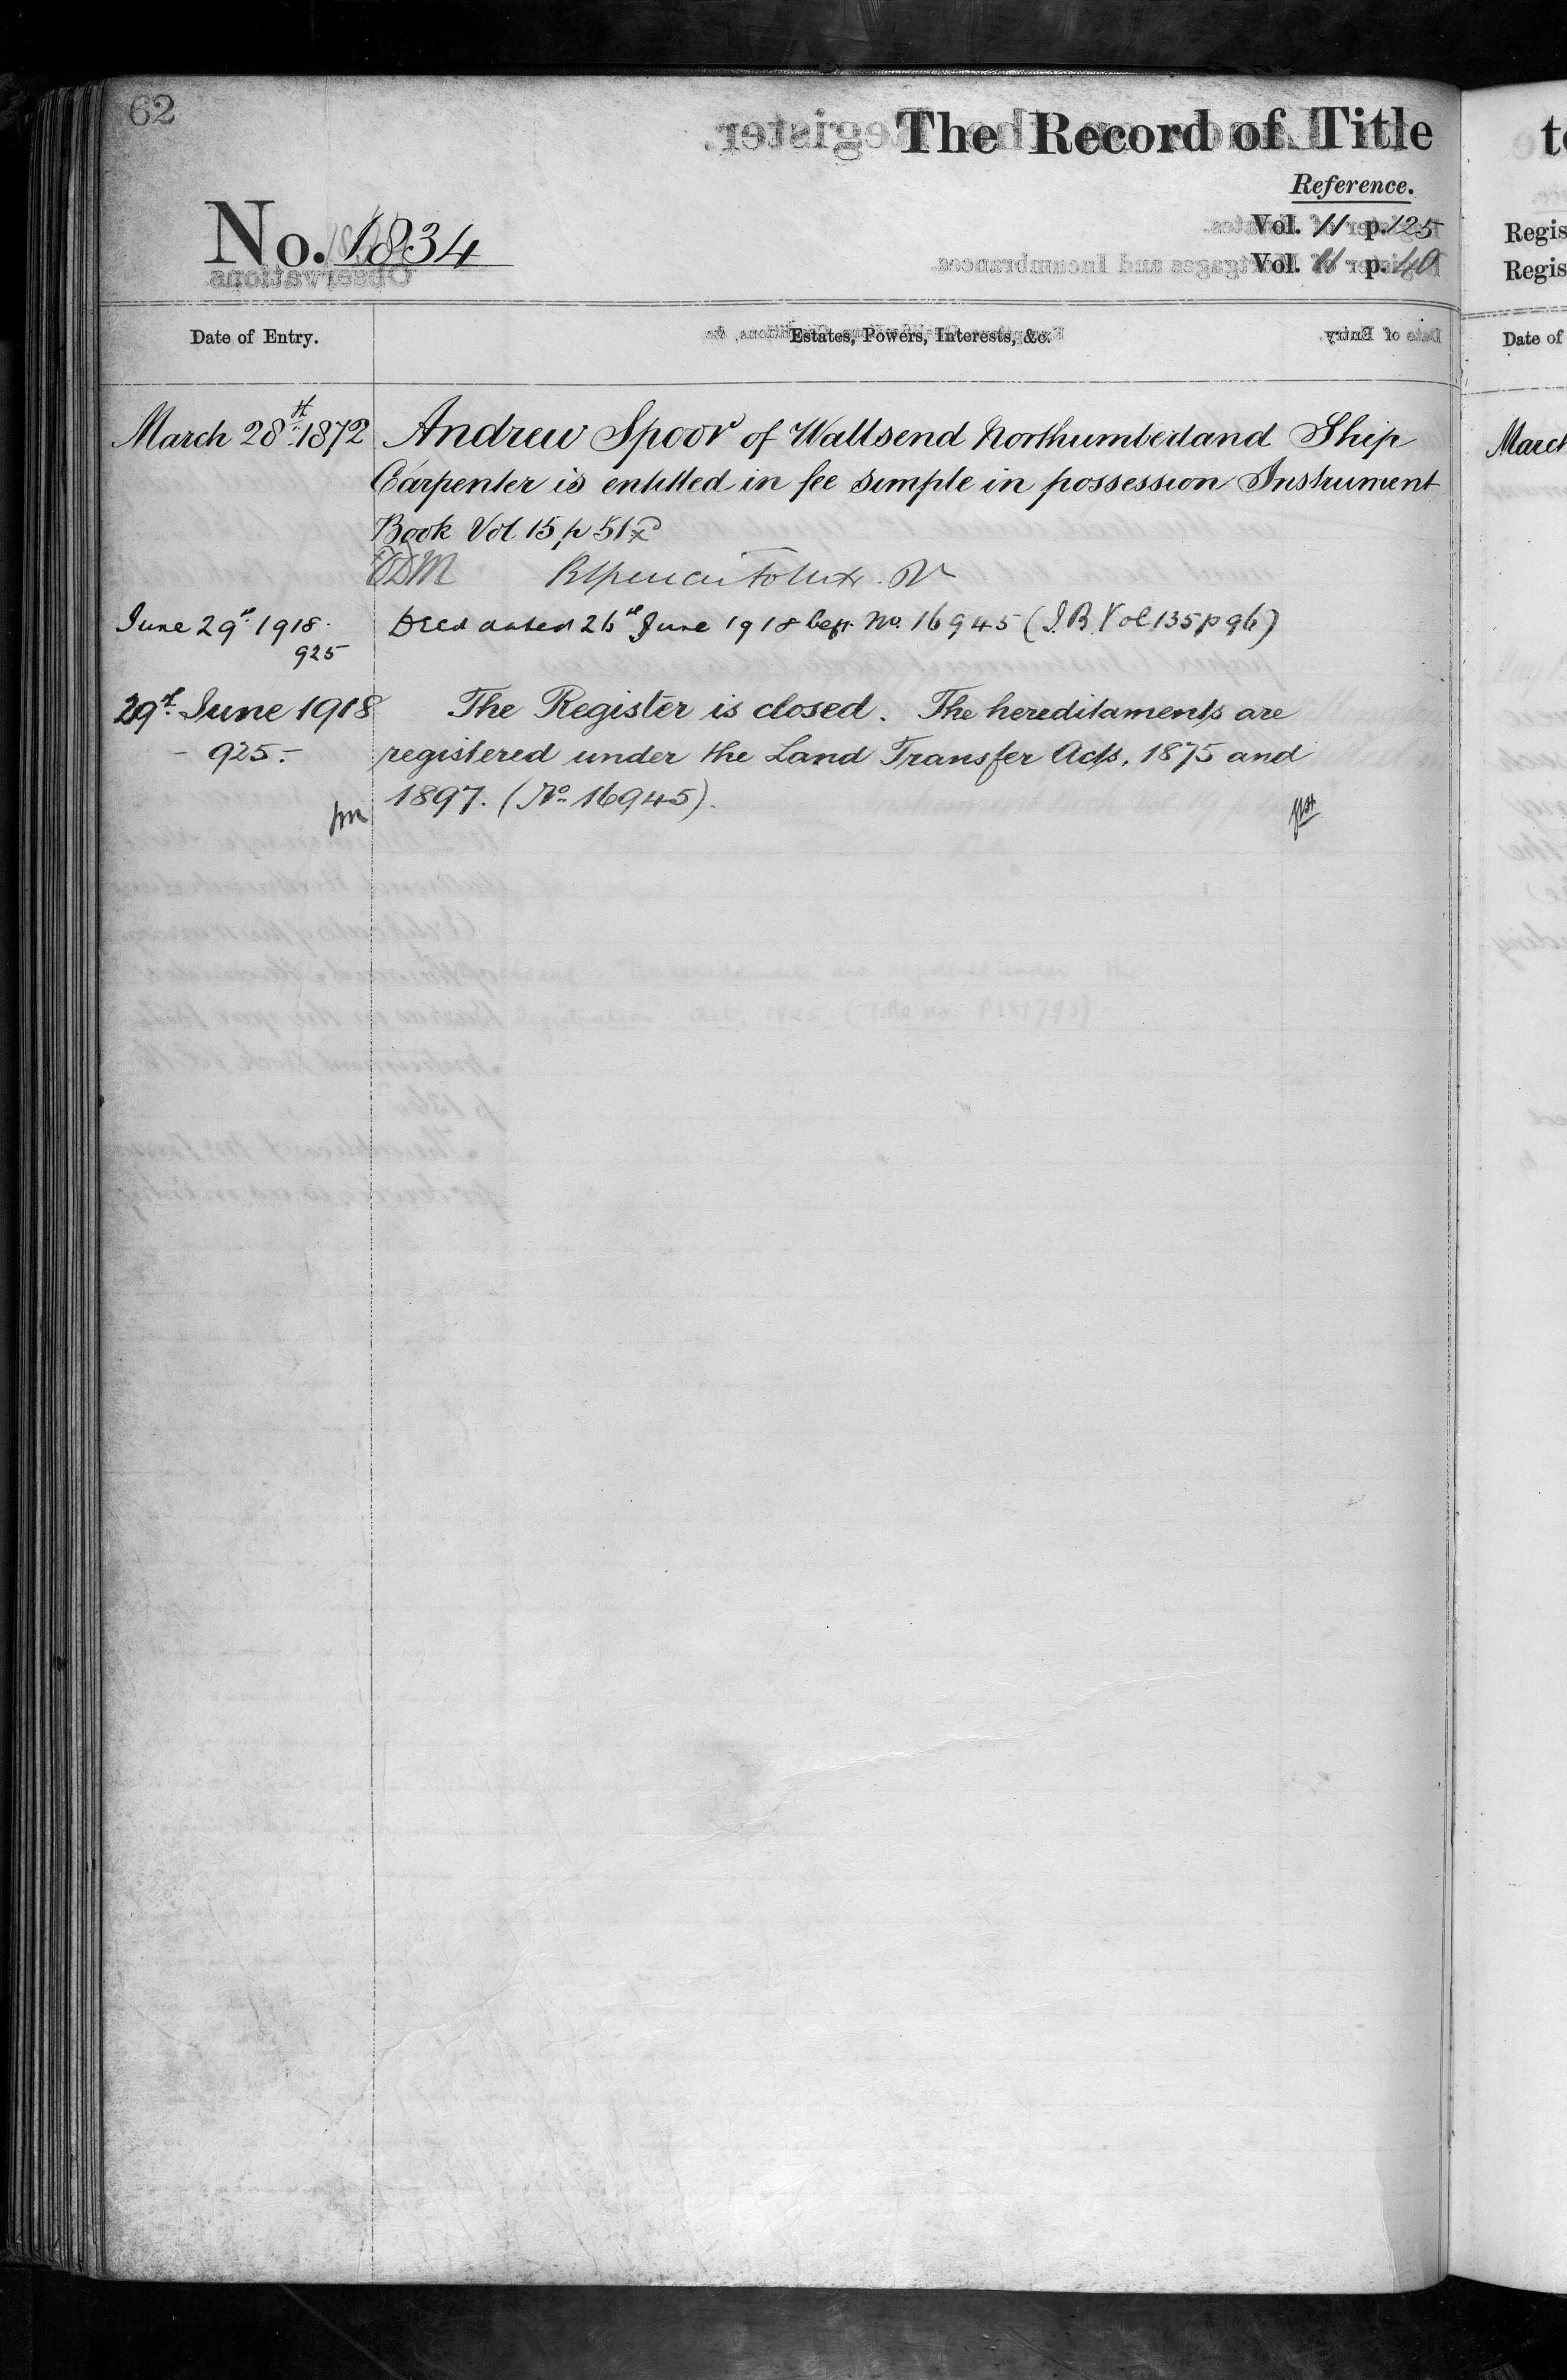 62
The Record of Title
Reference.
No. 1834
Vol. 11 p. 125
Vol. 11 p. 40
Date of Entry.
Estates, Powers, Interests, &c.
March 28th 1872 Andrew Spoor of Wallsend Northumberland Ship
Carpenter is entitled in fee simple in possession Instrument
Book Vol 15, p 51
June 29th 1918. Deed dated 26th June 1918 No. 16945 (I.B. Vol 135 p 96)
925
29th June 1918 The Register is closed. The hereditaments are
- 925.- registered under the Land Transfer Acts, 1875 and
1897. (No. 16945).
Regis
Regis
Date of
March